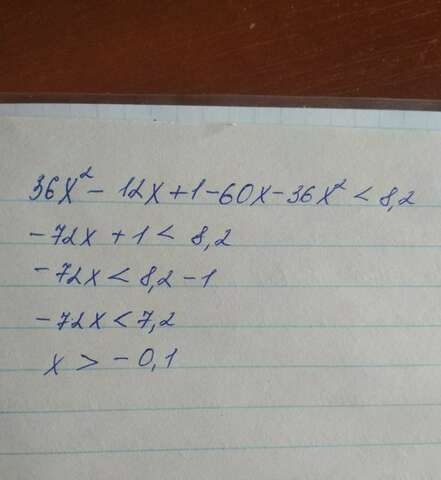 36x² - 12x + 1 - 60x - 36x² < 8,2
-72x + 1 < 8,2
-72x < 8,2 - 1
-72x < 7,2
x > -0,1